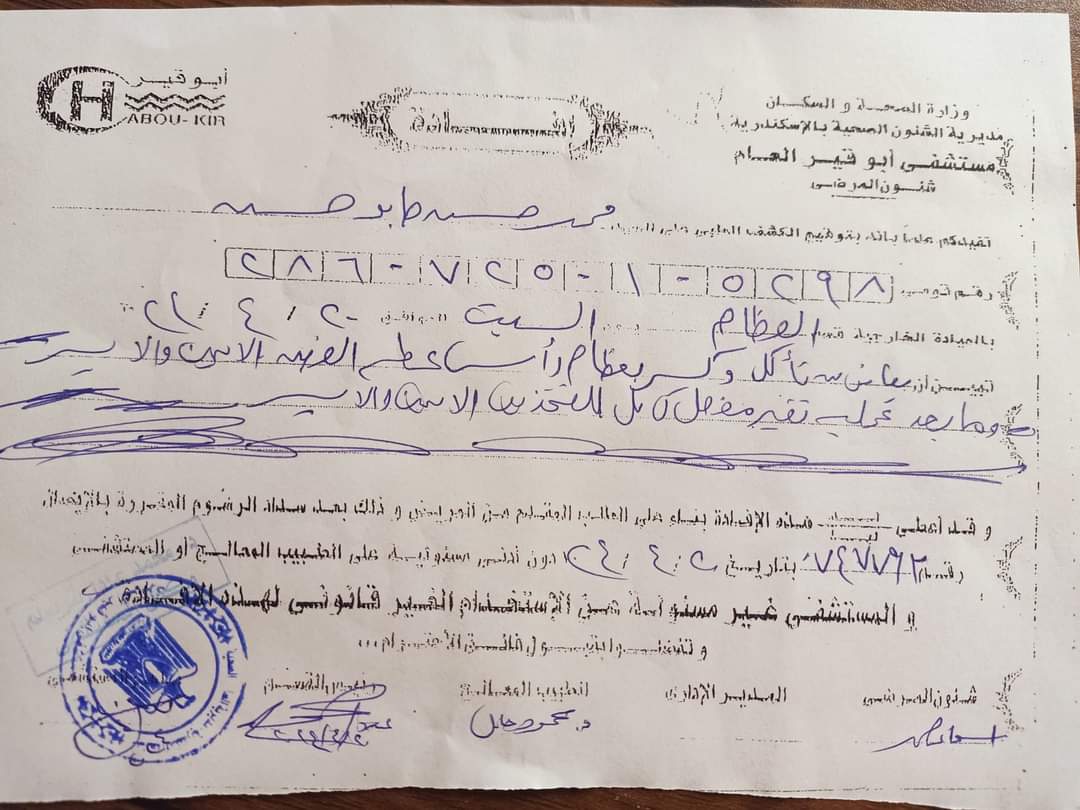 وزارة الصحة و السكان
مديرية الشئون الصحية بالإسكندرية
مستشفى أبو قير العام
شئون المرضى
أبو قير
ABOU-KIR
نفيدكم علماً بانه بتوقيع الكشف الطبى على السيد محمد حسن حسن
رقم قومى ٢٨٦-٧٢٥-١-٥٢٩٨
بالعيادة الخارجية قسم العظام يوم السبت الموافق ٢٠ / ٤ /
تبين أن يعانى من تأكل وكسر بعظام رأس عظم الفخذ الايمن والايسر
وما بعد عملية تغير مفصل كامل للفخذين الايمن والايسر
و قد أعطى هذه الإفادة بناء على الطلب المقدم من المريض و ذلك بعد سداد الرسوم المقررة بالإيصال
رقم ٧٤٧٧٩٣ بتاريخ ٢٤/٤/٢ دون أدنى مسئولية على الطبيب المعالج أو المستشفى
و المستشفى غير مسئولة عن الاستخدام الغير قانونى لهذه الإفادة
و تفضلوا بقبول فائق الأحترام ...
شئون المرضى
المدير الإدارى
الطبيب المعالج
رئيس القسم
د. محمود